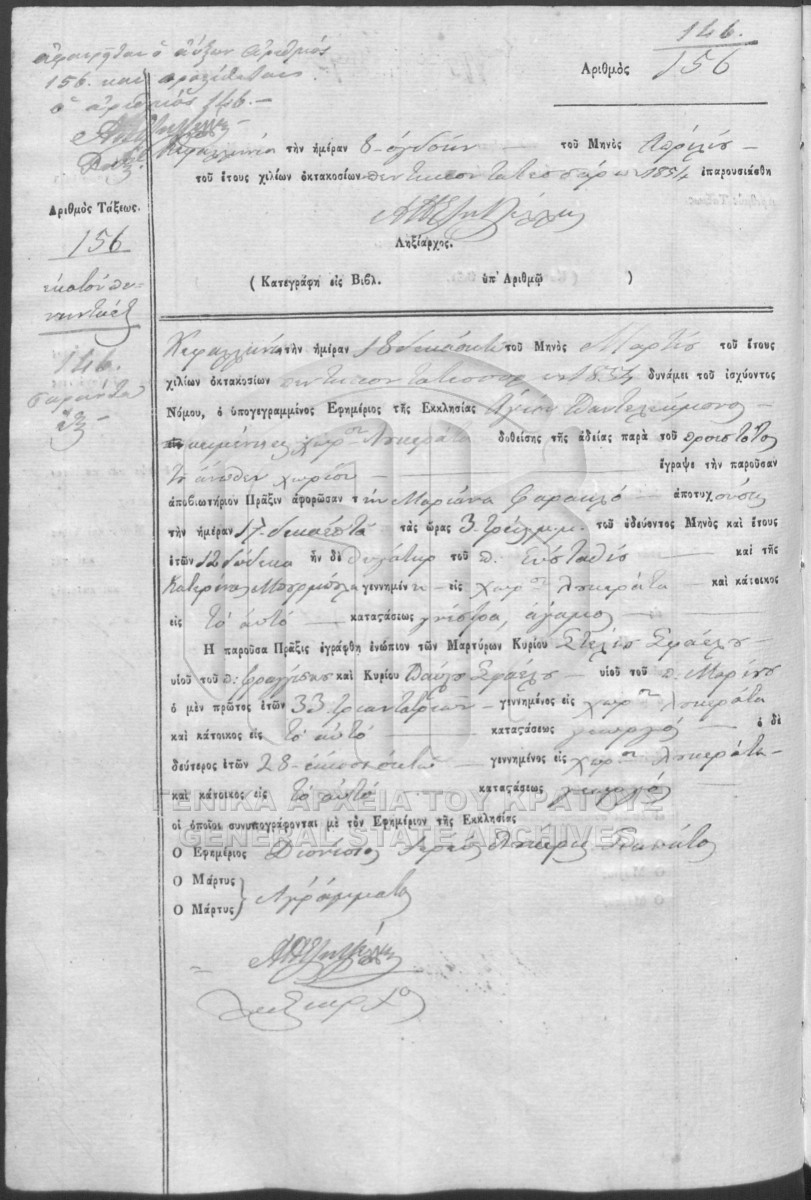 146.
Ἀριθμὸς 156
ὁ αὔξων ἀριθμὸς
156. καὶ
ὁ ἀριθμὸς 146.-
Κεφαλληνία τὴν ἡμέραν 8 - ὀγδόην - τοῦ Μηνὸς Ἀπριλίου -
τοῦ ἔτους χιλίων ὀκτακοσίων πεντηκοντατεσσάρων 1854 ἐπαρουσιάσθη
Ληξίαρχος.
( Κατεγράφη εἰς Βιβλ. ὑπ' Ἀριθμῷ )
Ἀριθμὸς Τάξεως.
156
ἑκατὸν πε-
νηντα ἓξ
146.
σαράντα
ἓξ -
Κεφαλληνία τὴν ἡμέραν 18 δεκάοκτω τοῦ Μηνὸς Μαρτίου τοῦ ἔτους
χιλίων ὀκτακοσίων πεντηκοντατεσσάρων 1854 δυνάμει τοῦ ἰσχύοντος
Νόμου, ὁ ὑπογεγραμμένος Ἐφημέριος τῆς Ἐκκλησίας Ἁγίου Παντελεήμονος -
κειμένης εἰς χωρ:ον δοθείσης τῆς ἀδείας παρὰ τοῦ προεστῶτος
τοῦ ἄνωθεν χωρίου - ἔγραψε τὴν παροῦσαν
ἀποβιωτήριον Πρᾶξιν ἀφορῶσαν τὴν Μαριάνα Φαρακλὸ - ἀποτυχοῦσαν
τὴν ἡμέραν 17. δεκαεπτὰ τὰς ὥρας 3. τρεῖς μ.μ. τοῦ ὁδεύοντος Μηνὸς καὶ ἔτους
ἐτῶν 12 δώδεκα ἦν δὲ θυγάτηρ τοῦ π. Εὐσταθίου - καὶ τῆς
Κατερίνας γεννημένη - εἰς χωρ:ον - καὶ κάτοικος
εἰς τὸ αὐτὸ - καταςάσεως γνήσια, ἄγαμος -
Ἡ παροῦσα Πρᾶξις ἐγράφθη ἐνώπιον τῶν Μαρτύρων Κυρίου Στελίου
υἱοῦ τοῦ π: Φραγγίσκου καὶ Κυρίου Παύλου - υἱοῦ τοῦ π. Μαρίνου
ὁ μὲν πρῶτος ἐτῶν 33 τριαντατριῶν - γεννημένος εἰς χωρ:ον
καὶ κάτοικος εἰς τὸ αὐτὸ - καταςάσεως γεωργὸς - ὁ δὲ
δεύτερος ἐτῶν 28 - εἰκοσιοκτὼ - γεννημένος εἰς χωρ:ον
καὶ κάτοικος εἰς τὸ αὐτὸ - καταςάσεως γεωργὸς
οἱ ὁποῖοι συνυπογράφονται μὲ τὸν Ἐφημέριον τῆς Ἐκκλησίας
Ὁ Ἐφημέριος Διονύσιος Ἱερεὺς
Ὁ Μάρτυς
Ὁ Μάρτυς } Ἀγράμματοι
Ληξίαρχος
ΓΕΝΙΚΑ ΑΡΧΕΙΑ ΤΟΥ ΚΡΑΤΟΥΣ
GENERAL STATE ARCHIVES